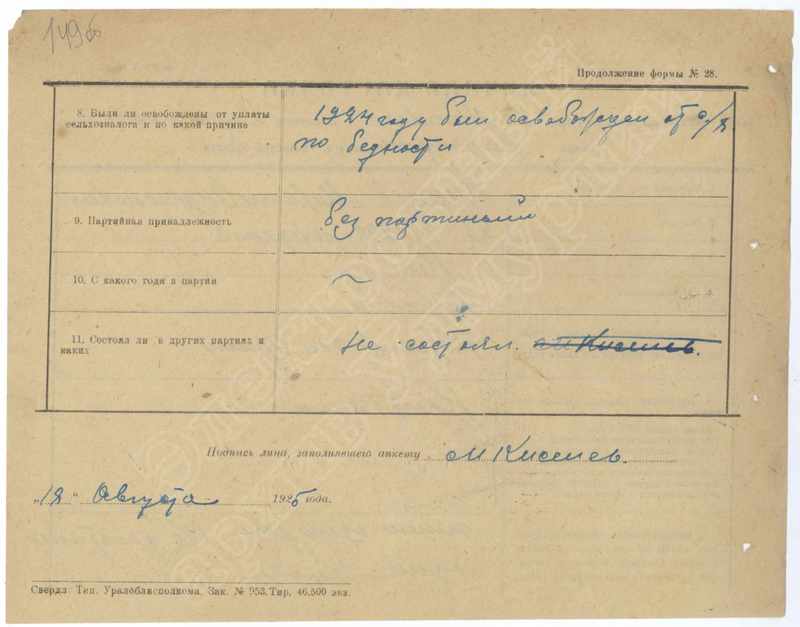 149об
Продолжение формы № 28.
8. Были ли освобождены от уплаты
сельхозналога и по какой причине
1924 году был освобожден от с/х
по бедности
9. Партийная принадлежность
без партийный
10. С какого года в партии
~
11. Состоял ли в других партиях и
каких
Не состоял.
Подпись лица, заполнявшего анкету М Киселев.
„12“ Августа 1925 года.
Свердл. Тип. Уралоблисполкома. Зак. № 953. Тир. 46.500 экз.